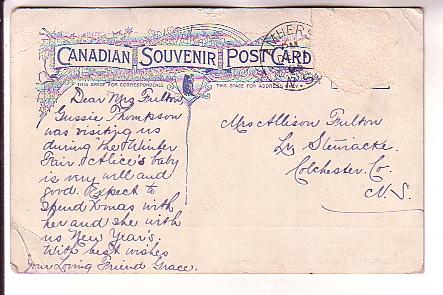 CANADIAN SOUVENIR POST CARD
THIS SPACE FOR CORRESPONDENCE
THIS SPACE FOR ADDRESS ONLY
Dear Mrs Fulton
Gussie Thompson
was visiting us
during the Winter
Fair. Alice's baby
is very well and
good. Expect to
Spend Xmas with
her and she with
us New Year's.
With best wishes
Your Loving Friend Grace.
Mrs Allison Fulton
Stewiacke
Colchester. Co.
N.S.